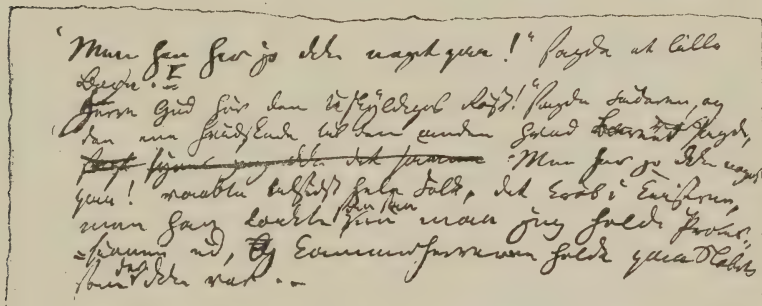 "Men han har jo ikke noget paa!" sagde et lille
Barn. I
Herre Gud hør den Uskyldiges Røst!" sagde Faderen, og
den ene hvidskede til den anden hvad Barnet sagde,
ikke det samme Men har jo ikke noget
paa! raabte tilsidst hele Folk, det krøb i Keiseren,
men han tænkte som saa maa jeg holde Proces-
sionen ud, Og Kammerherrerne holdt paa Slæbet
som der ikke var --